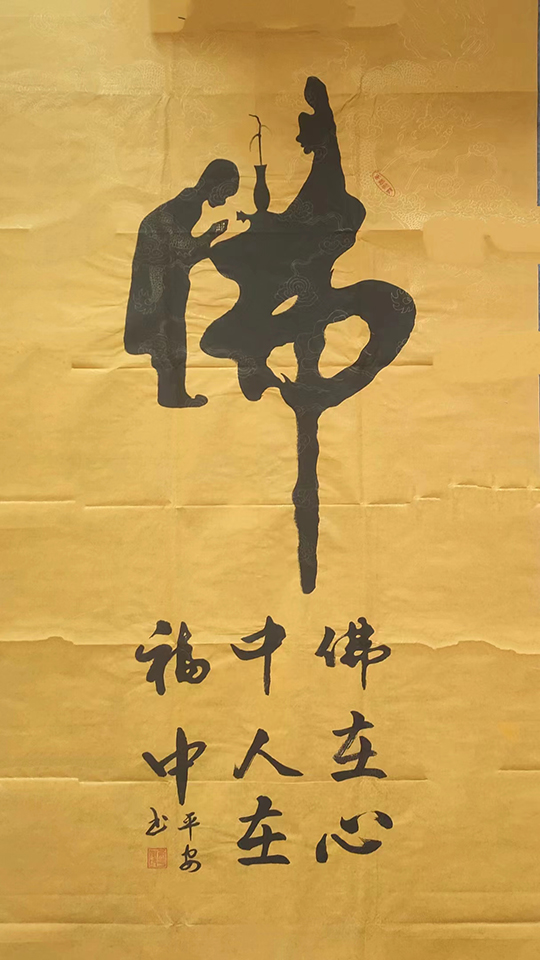 佛
佛在心
中人在
福中
平安
书